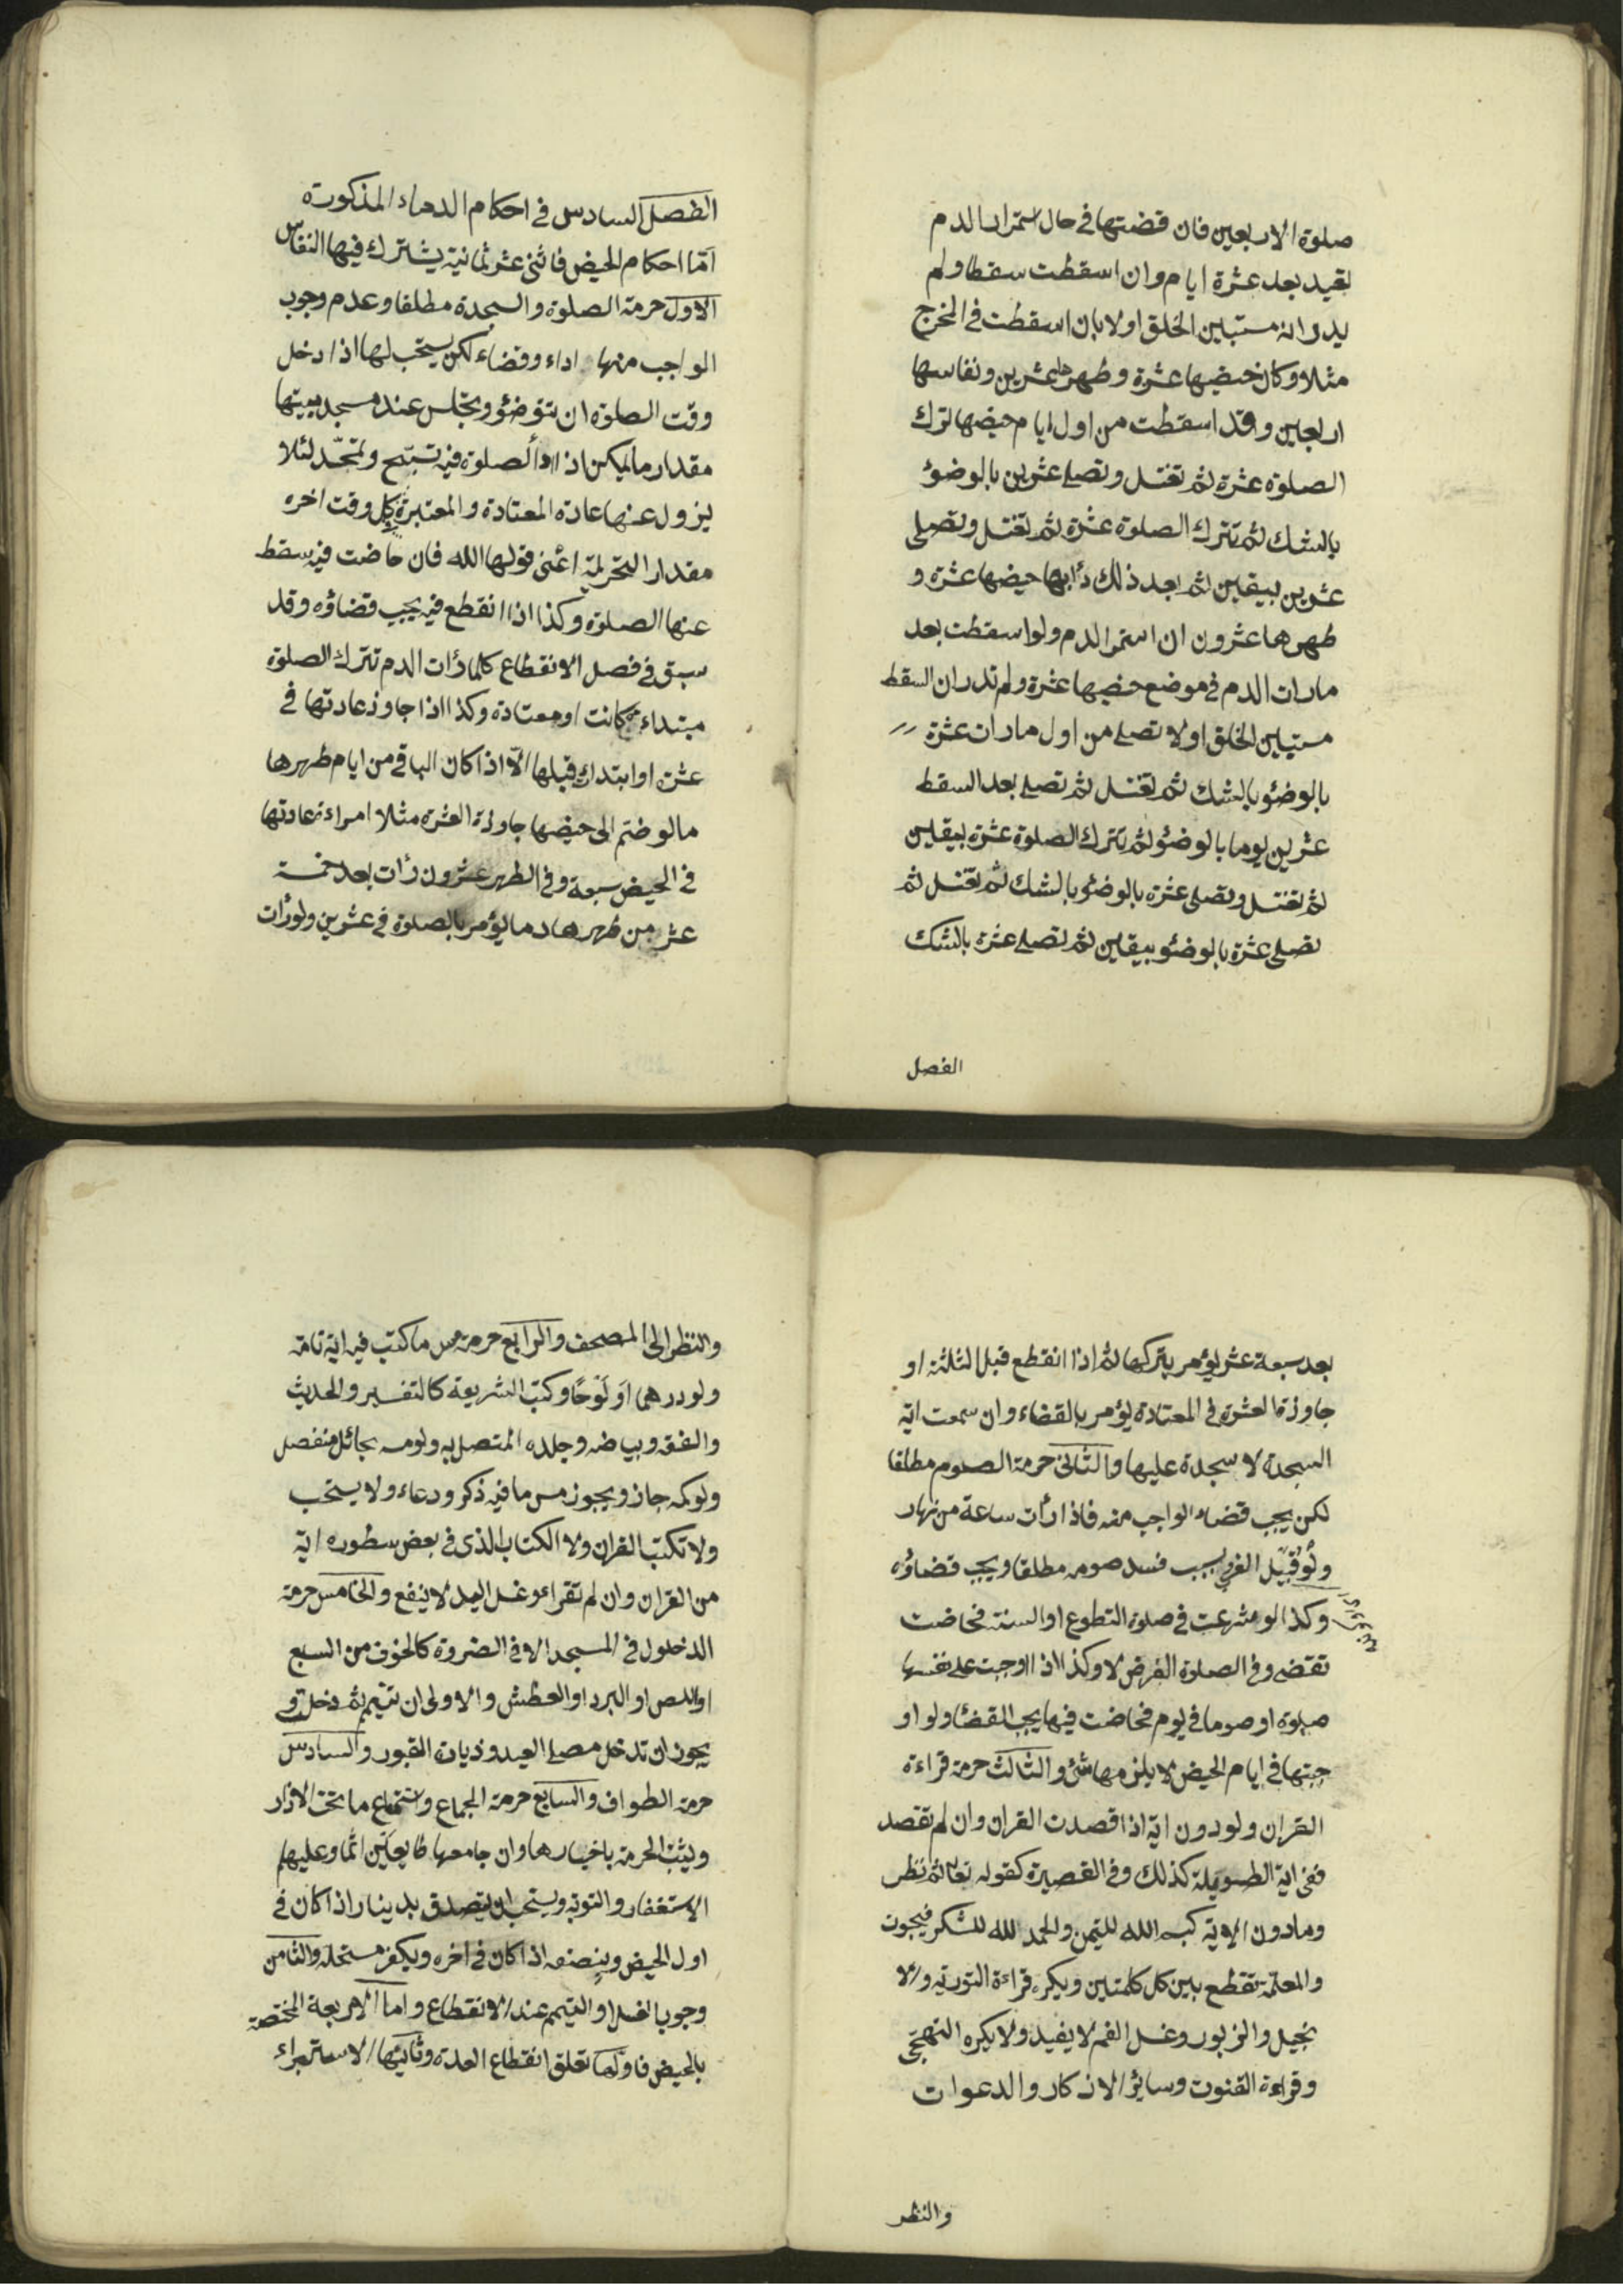 صلوة الاربعين فان قضتها في حال استمرار الدم
تعيد بعد عشرة ايام وان اسقطت سقطا ولم
يدر انه مستبين الخلق او لا بان اسقطت في المخرج
مثلا وكان حيضها عشرة وطهرها عشرين ونفاسها
اربعين وقد اسقطت من اول ايام حيضها تترك
الصلوة عشرة ثم تغتسل وتصلى عشرين بالوضوء
بالشك ثم تترك الصلوة عشرة ثم تغتسل وتصلى
عشرين بيقين ثم بعد ذلك دأبها حيضها عشرة و
طهرها عشرون ان استمر الدم ولو اسقطت بعد
مارات الدم في موضع حيضها عشرة ولم تدر ان السقط
مستبين الخلق او لا تصلى من اول مارات عشرة
بالوضوء بالشك ثم تغتسل ثم تصلى بعد السقط
عشرين يوما بالوضوء ثم تترك الصلوة عشرة بيقين
ثم تغتسل وتصلى عشرة بالوضوء بالشك ثم تغتسل ثم
تصلى عشرة بالوضوء بيقين ثم تصلى عشرة بالشك
الفصل
الفصل السادس في احكام الدماء المذكورة
امّا احكام الحيض فاثنى عشر ثمانية يشترك فيها النفاس
الاول حرمة الصلوة والسجدة مطلقا وعدم وجوب
الواجب منها اداء وقضاء لكن يستحب لها اذا دخل
وقت الصلوة ان تتوضؤ وتجلس عند مسجد بيتها
مقدار ما يمكن اداأ الصلوة فيه تسبّح وتحمّد لئلا
يزول عنها عادة المعتادة والمعتبرة كل وقت اخره
مقدار التحريمة اعنى قولها الله فان حاضت فيه سقط
عنها الصلوة وكذا اذا انقطع فيه يجب قضاؤه وقد
سبق في فصل الانقطاع كلما رأت الدم تترك الصلوة
مبتداءة كانت او معتادة وكذا اذا جاوز عادتها في
عشرة او ابتداء قبلها الّا اذا كان الباقي من ايام طهرها
مالو ضم الى حيضها جاوزة العشرة مثلا امراءة عادتها
في الحيض سبعة وفي الطهر عشرون رأت بعد خمسة
عشر من طهرها دما يؤمر بالصلوة في عشرين ولو رأت
بعد سبعة عشر يؤمر بتركها ثم اذا انقطع قبل الثلثة او
جاوزة العشرة في المعتادة يؤمر بالقضاء وان سمعت اية
السجدة لا سجدة عليها والثانى حرمة الصوم مطلقا
لكن يجب قضاء الواجب منه فاذا رأت ساعة من نهار
ولو قبيل الغروب فسد صومه مطلقا ويجب قضاؤه
وكذا لو شرعت في صلوة التطوع او السنة فحاضت
تقضى وفي الصلوة الفرض لا وكذا اذا اوجبت على نفسها
صلوة او صوما في يوم فحاضت فيها يجب القضاء ولو او
جبتها في ايام الحيض لا يلزمها شئ والثالث حرمة قراءة
القران ولو دون اية اذا قصدت القران وان لم تقصد
ففى اية الطويلة كذلك وفي القصيرة كقوله تعا ثم نظر
ومادون الاية كبسم الله لليتمن والحمد لله للشكر فيجوز
والمعلمة تقطع بين كل كلمتين ويكره قراءة التورية والا
نجيل والزبور وغسل الفم لا يفيد ولا يكره التهجّى
وقراءة القنوت وسائر الاذكار والدعوات
والنظر
والنظر الى المصحف والرابع حرمة مس ما كتب فيه اية تامة
ولو درهما او لَوْحًا وكتب الشريعة كالتفسير والحديث
والفقه وبياضه وجلده المتصل به ولو مسه بحائل منفصل
ولو كمه جاز ويجوز مس ما فيه ذكر ودعاء ولا يستحب
ولا تكتب القران ولا الكتاب الذى في بعض سطوره اية
من القران وان لم تقراء وغسل اليد لا ينفع والخامس حرمة
الدخول في المسجد الا في الضروة كالخوف من السبع
او اللص او البرد او العطش والاولى ان تتيمم ثم دخلت و
يجوز ان تدخل مصلى العيد وزيارة القبور والسادس
حرمة الطواف والسابع حرمة الجماع واستمتاع ما تحت الازار
ويثبت الحرمة باخبارها وان جامعها طايعين اثما وعليهم
الاستغفار والتوبة ويستحب ان يتصدق بدينار اذا كان في
اول الحيض وبنصفه اذا كان في اخره ويكفر مستحله والثامن
وجوب الغسل او التيمم عند الانقطاع واما الاربعة المختصة
بالحيض فاولها تعلق انقطاع العدة وثانيها الاستبراء